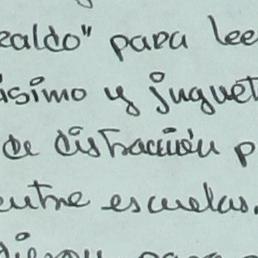 ealdo" para lee
isimo y juguet
de distracción p
entre escuelas.